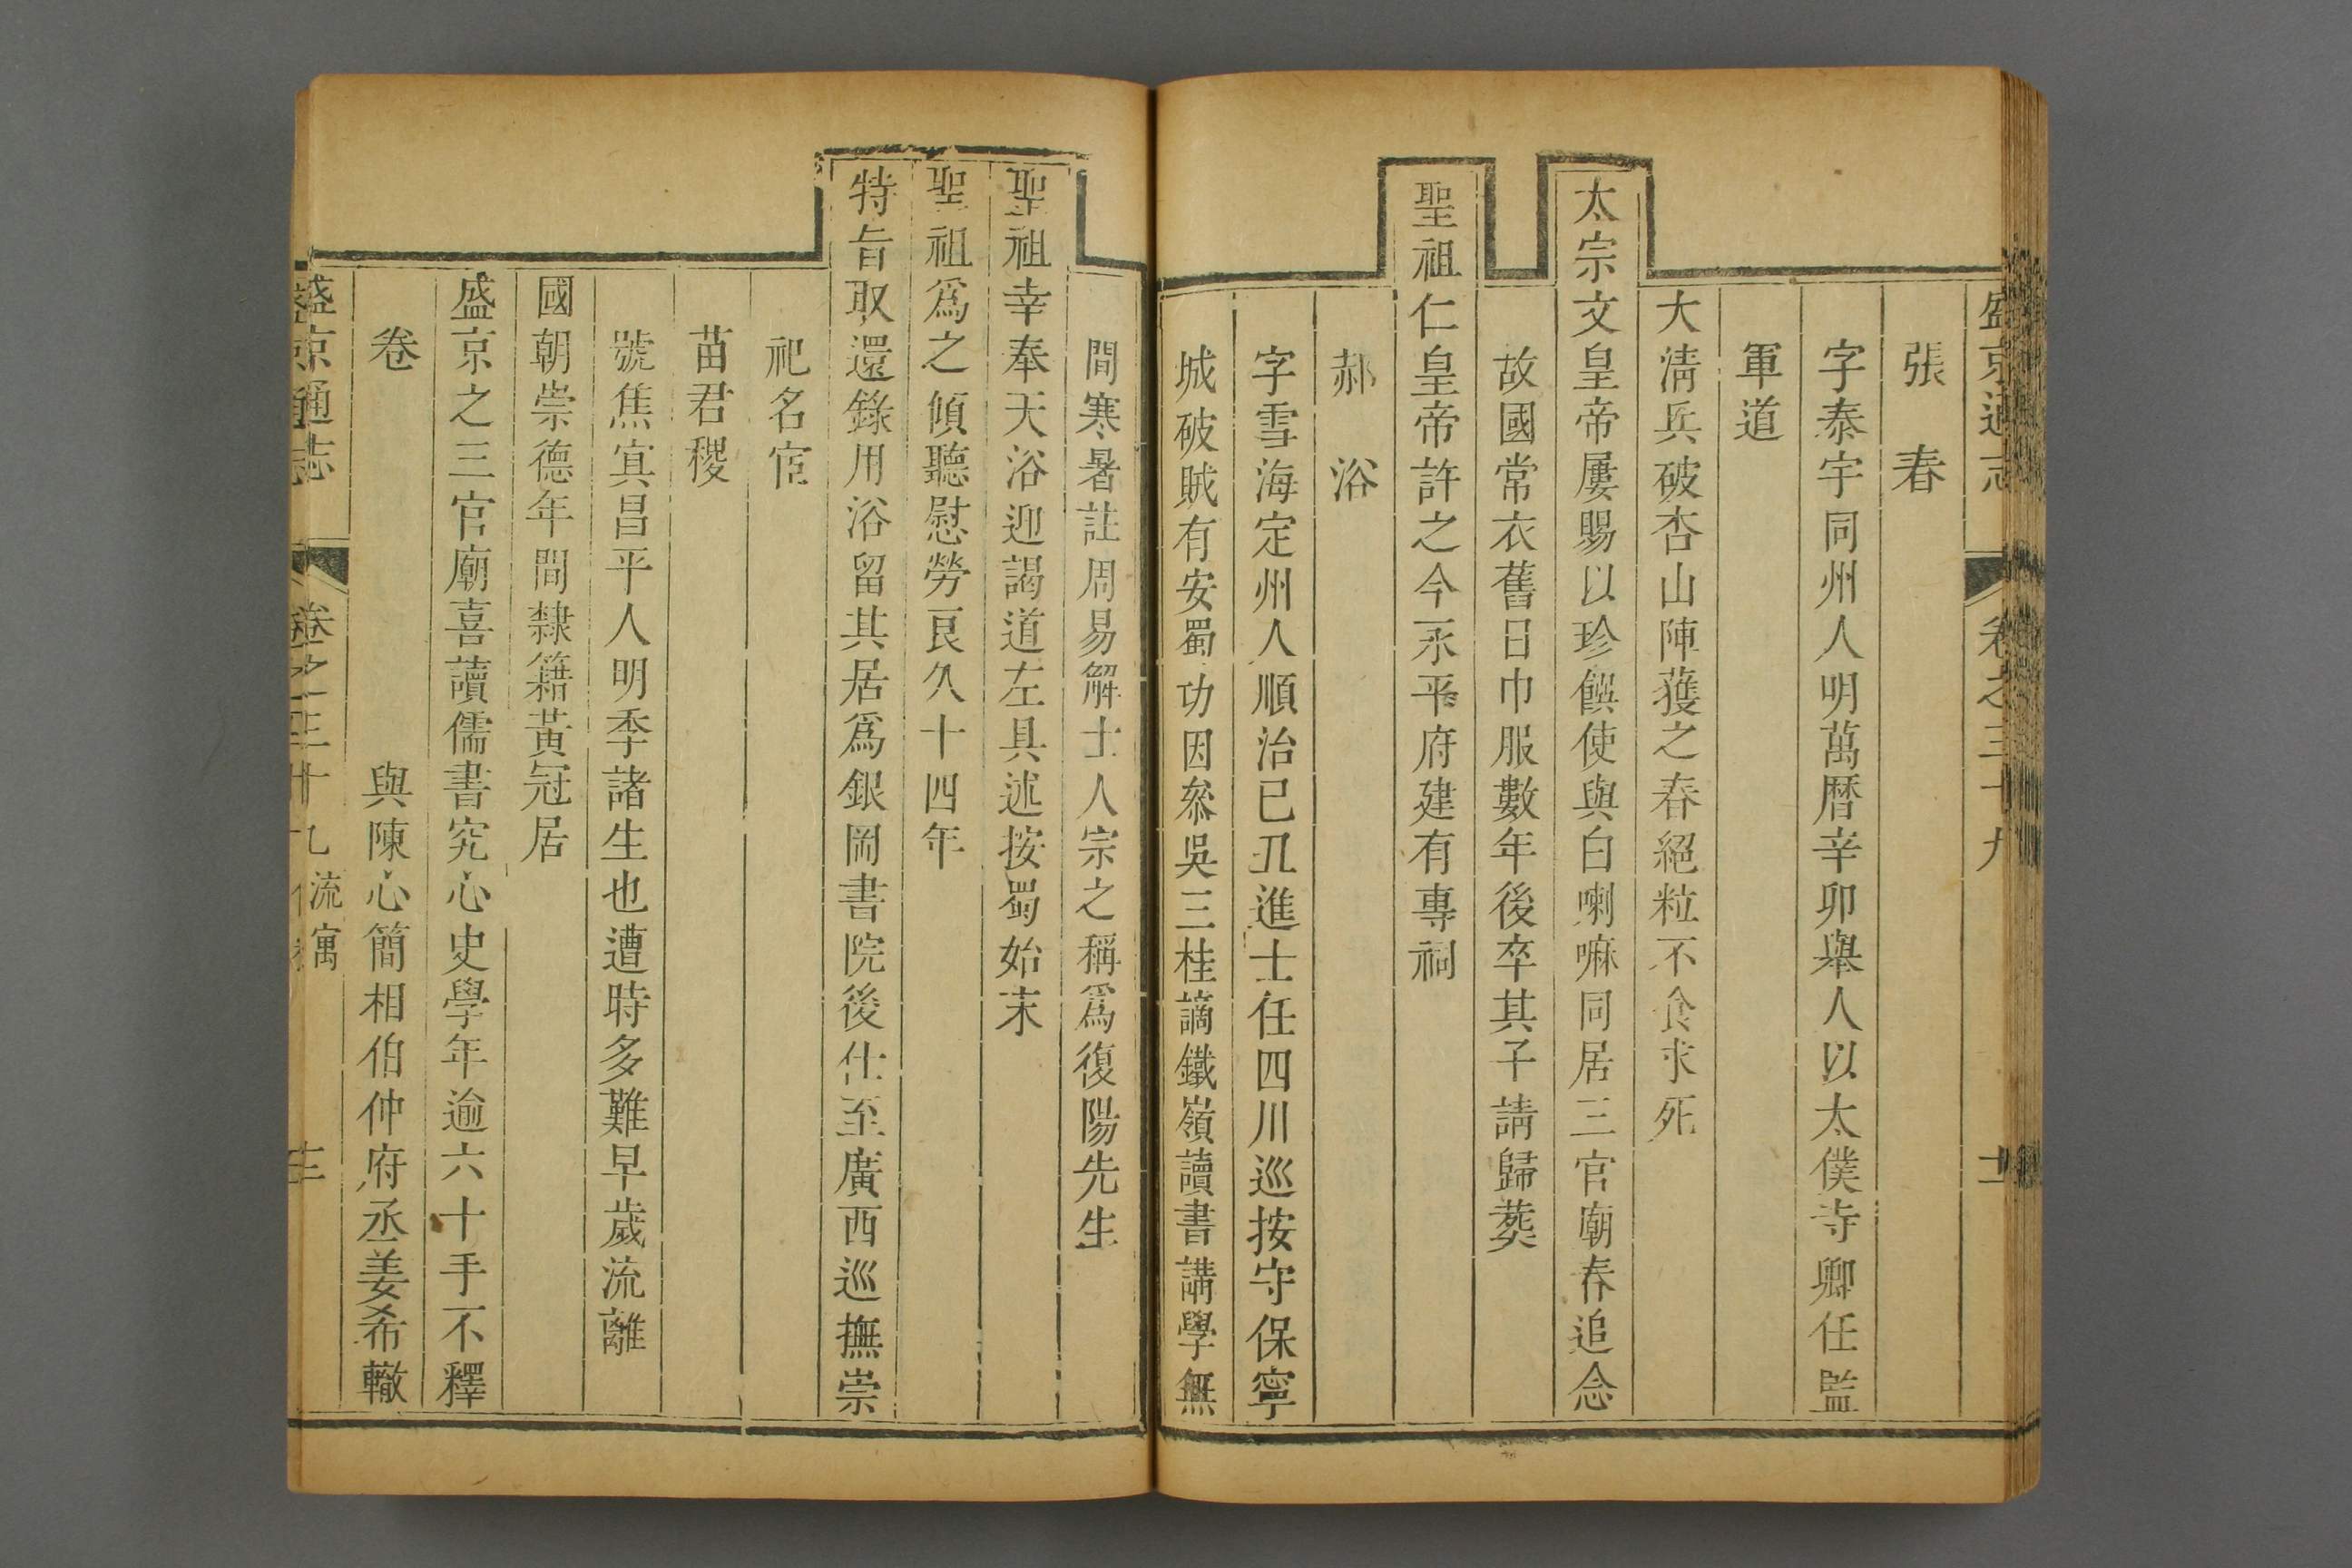 盛京通志 卷之三十九 十二
張春
字泰宇同州人明萬曆辛卯舉人以太僕寺卿任監
軍道
大淸兵破杏山陣獲之春絕粒不食求死
太宗文皇帝屢賜以珍饌使與白喇嘛同居三官廟春追念
故國常衣舊日巾服數年後卒其子請歸葬
聖祖仁皇帝許之今永平府建有專祠
郝浴
字雪海定州人順治己丑進士任四川巡按守保寧
城破賊有安蜀功因叅吳三桂謫鐵嶺讀書講學無
間寒暑註周易解士人宗之稱爲復陽先生
聖祖幸奉天浴迎謁道左具述按蜀始末
聖祖爲之傾聽慰勞良久十四年
特旨取還錄用浴留其居爲銀岡書院後仕至廣西巡撫崇
祀名宦
苗君稷
號焦寅昌平人明季諸生也遭時多難早歲流離
國朝崇德年間隸籍黃冠居
盛京之三官廟喜讀儒書究心史學年逾六十手不釋
卷 與陳心簡相伯仲府丞姜希轍
盛京通志 卷之三十九 流寓